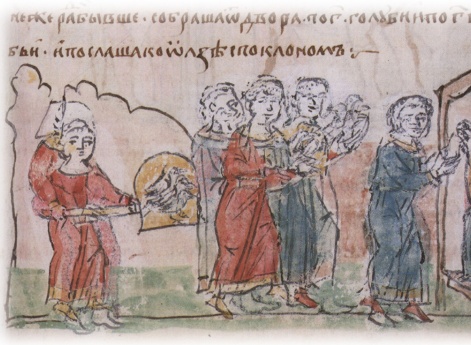 же ра бывше · собраша ѿ двора · по · г҃ · голоби и по г҃
бьи · и послаша ко ѡлзѣ с поклономъ :~